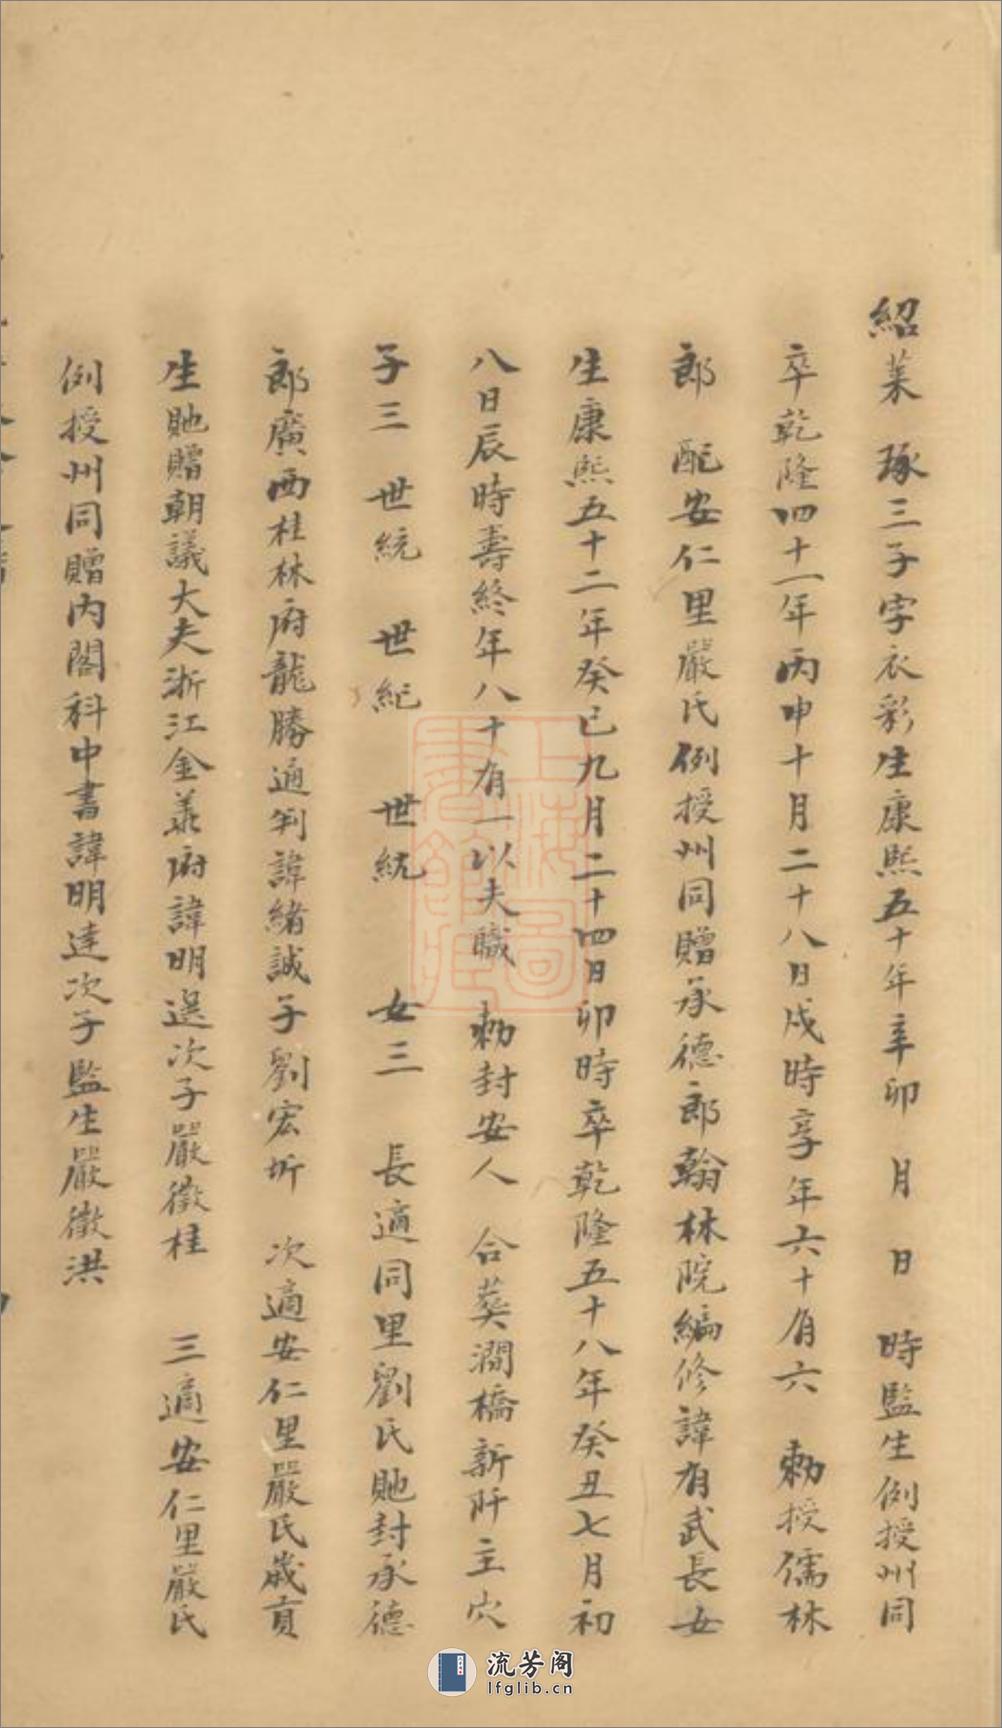 紹萊 琢三子字衣彩生康熙五十年辛卯 月 日 時監生例授州同
卒乾隆四十一年丙申十月二十八日戌時享年六十有六 勅授儒林
郎 配安仁里嚴氏例授州同贈承德郎翰林院編修諱有武長女
生康熙五十二年癸巳九月二十四日卯時卒乾隆五十八年癸丑七月初
八日辰時壽終年八十有一以夫職 勅封安人 合葬澗橋新阡主穴
子三 世統 世紀 世統 女三 長適同里劉氏貤封承德
郎廣西桂林府龍勝通判諱緒誠子劉宏圻 次適安仁里嚴氏歲貢
生貤贈朝議大夫浙江金華府諱明選次子嚴徵桂 三適安仁里嚴氏
例授州同贈內閣科中書諱明達次子監生嚴徵洪
上海圖書館藏
流芳阁
lfglib.cn